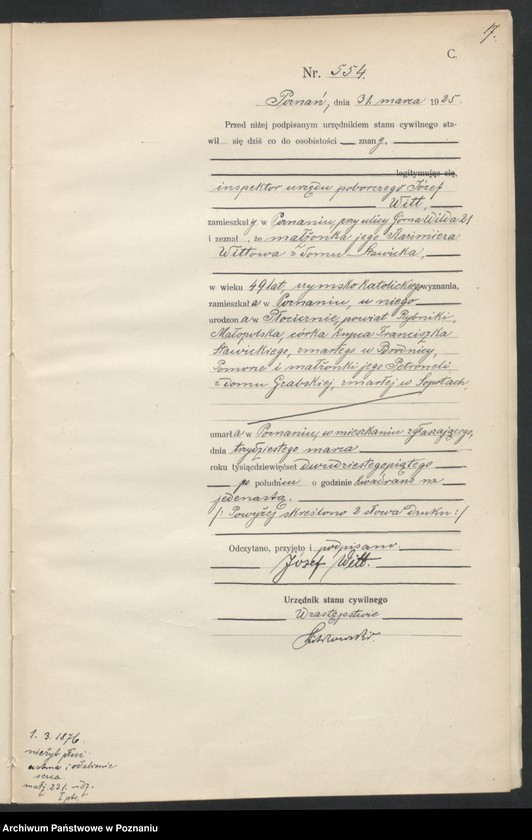 7.
C.
Nr. 554.
Poznań, dnia 31. marca 1925.
Przed niżej podpisanym urzędnikiem stanu cywilnego sta-
wił się dziś co do osobistości znany,
legitymując się,
inspektor urzędu poborczego Józef
Witt,
zamieszkały w Poznaniu, przy ulicy Górna Wilda 21
i zeznał, że małżonka jego Kazimiera
Wittowa z domu Sławicka,
w wieku 49 lat, rzymsko katolickiego wyznania,
zamieszkała w Poznaniu, u niego
urodzona w Płociernie, powiat Rybniki,
Małopolska, córka kupca Franciszka
Sławickiego, zmarłego w Brodnicy,
Pomorze i małżonki jego Petroneli
z domu Grabskiej, zmarłej w Sopotach,
umarła w Poznaniu, w mieszkaniu zgłaszającego,
dnia trzydziestego marca
roku tysiącdziewięćset dwudziestegopiątego
po południu o godzinie kwadrans na
jedenastą.
/: Powyżej skreślono 2 słowa druku :/
Odczytano, przyjęto i podpisano.
Józef Witt.
Urzędnik stanu cywilnego
W zastępstwie
1. 3. 1876.
nieżyt płuc
astma i osłabienie
serca.
małż. 23 l.
Archiwum Państwowe w Poznaniu